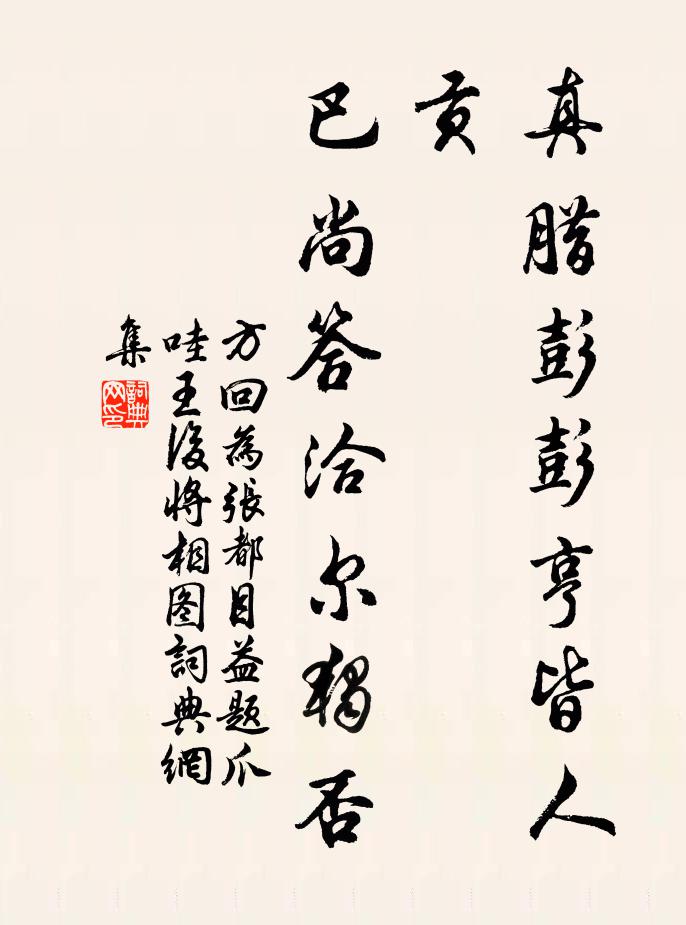 真腊彭彭亨皆人
贡
巴尚答洽尔独否
方回為張都目益题爪
哇王後將相图詞典網
集
詞典
网印